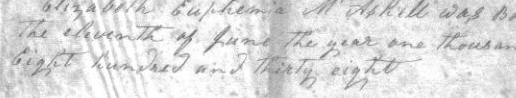 Elizabeth Euphemia McAskill was Bo
The eleventh of June the year one thousan
Eight hundred and thirty eight